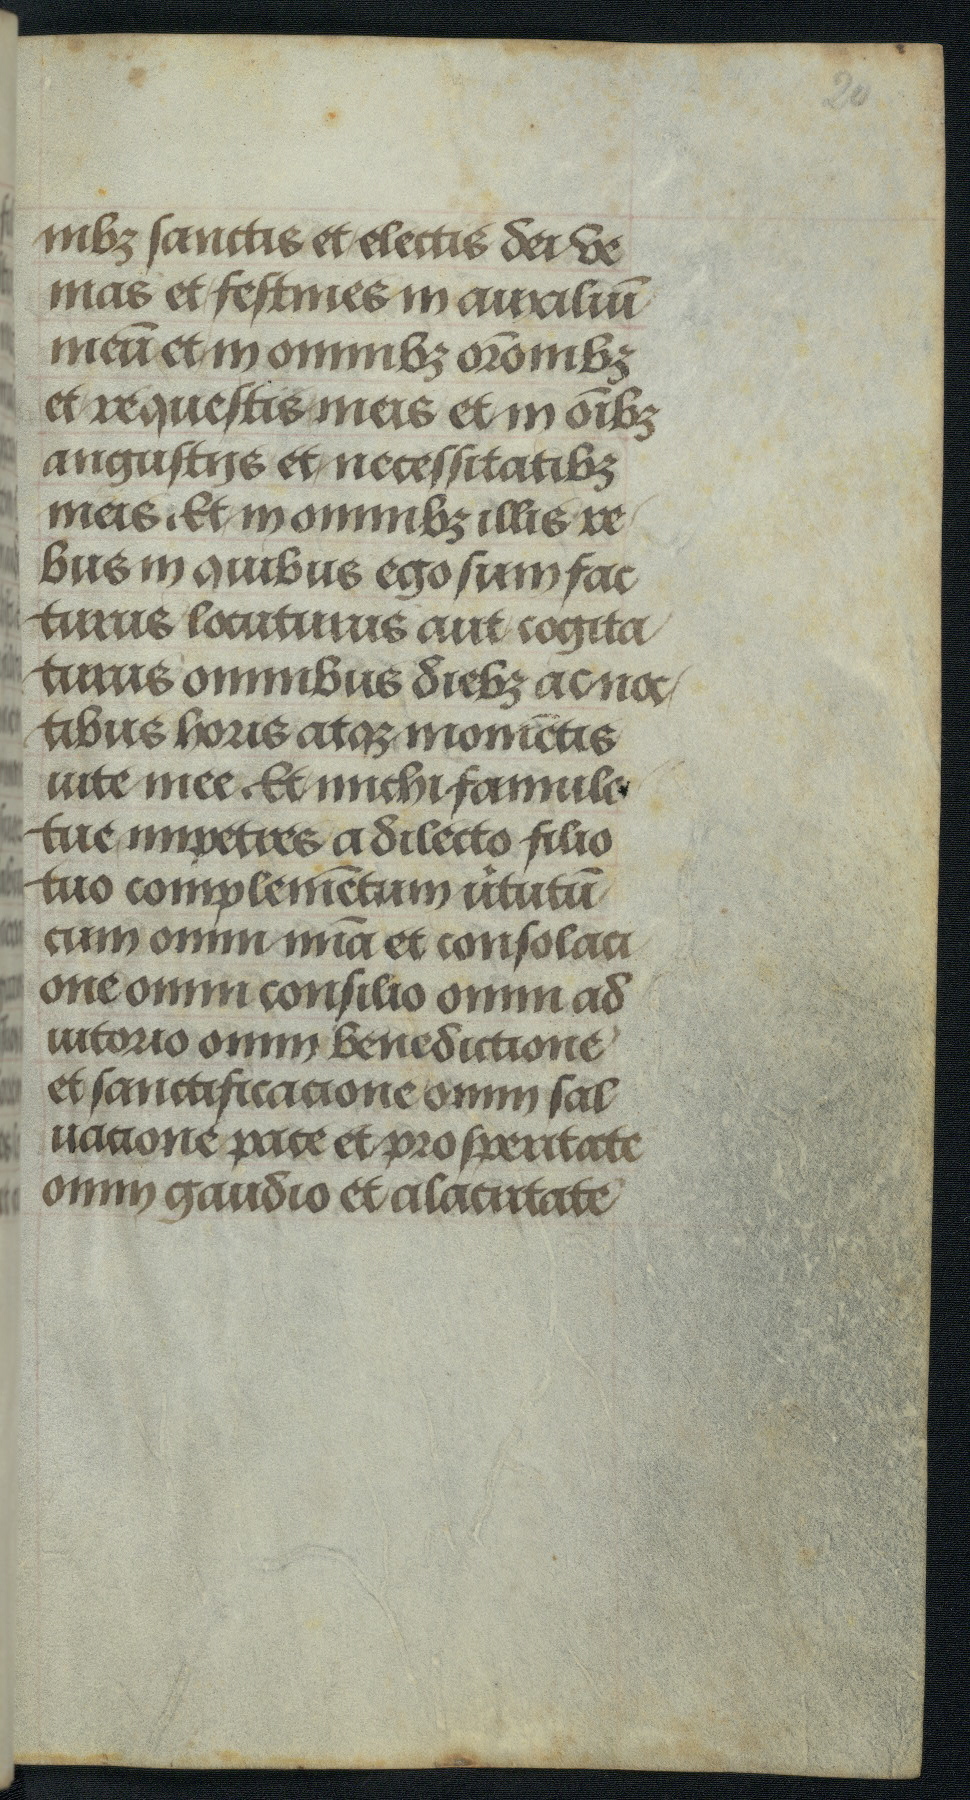 20
nibꝫ sanctis et electis dei ve
nias et festines in auxiliū
meū et in omnibꝫ or̄onibꝫ
et requestis meis et in oībꝫ
angustijs et necessitatibꝫ
meis. Et in omnibꝫ illis re
bus in quibus ego sum fac
turus locuturus aut cogita
turus omnibus diebꝫ ac noc
tibus horis atqꝫ momētis
uite mee. Et michi famule
tue impetres a dilecto filio
tuo complemētum ūtutū
cum omni mīa et consolaci
one omni consilio omni ad
iutorio omni benedictione
et sanctificacione omni sal
uacione pace et prosperitate
omni gaudio et alacritate